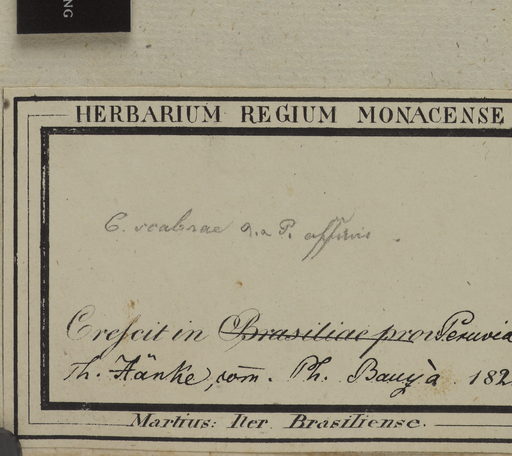 NG
HERBARIUM REGIUM MONACENSE
C. scabrae R. a P. affinis.
Crescit in Brasiliae prov Peruvia
Th. Hänke, com. Ph. 182
Martius: Iter Brasiliense.